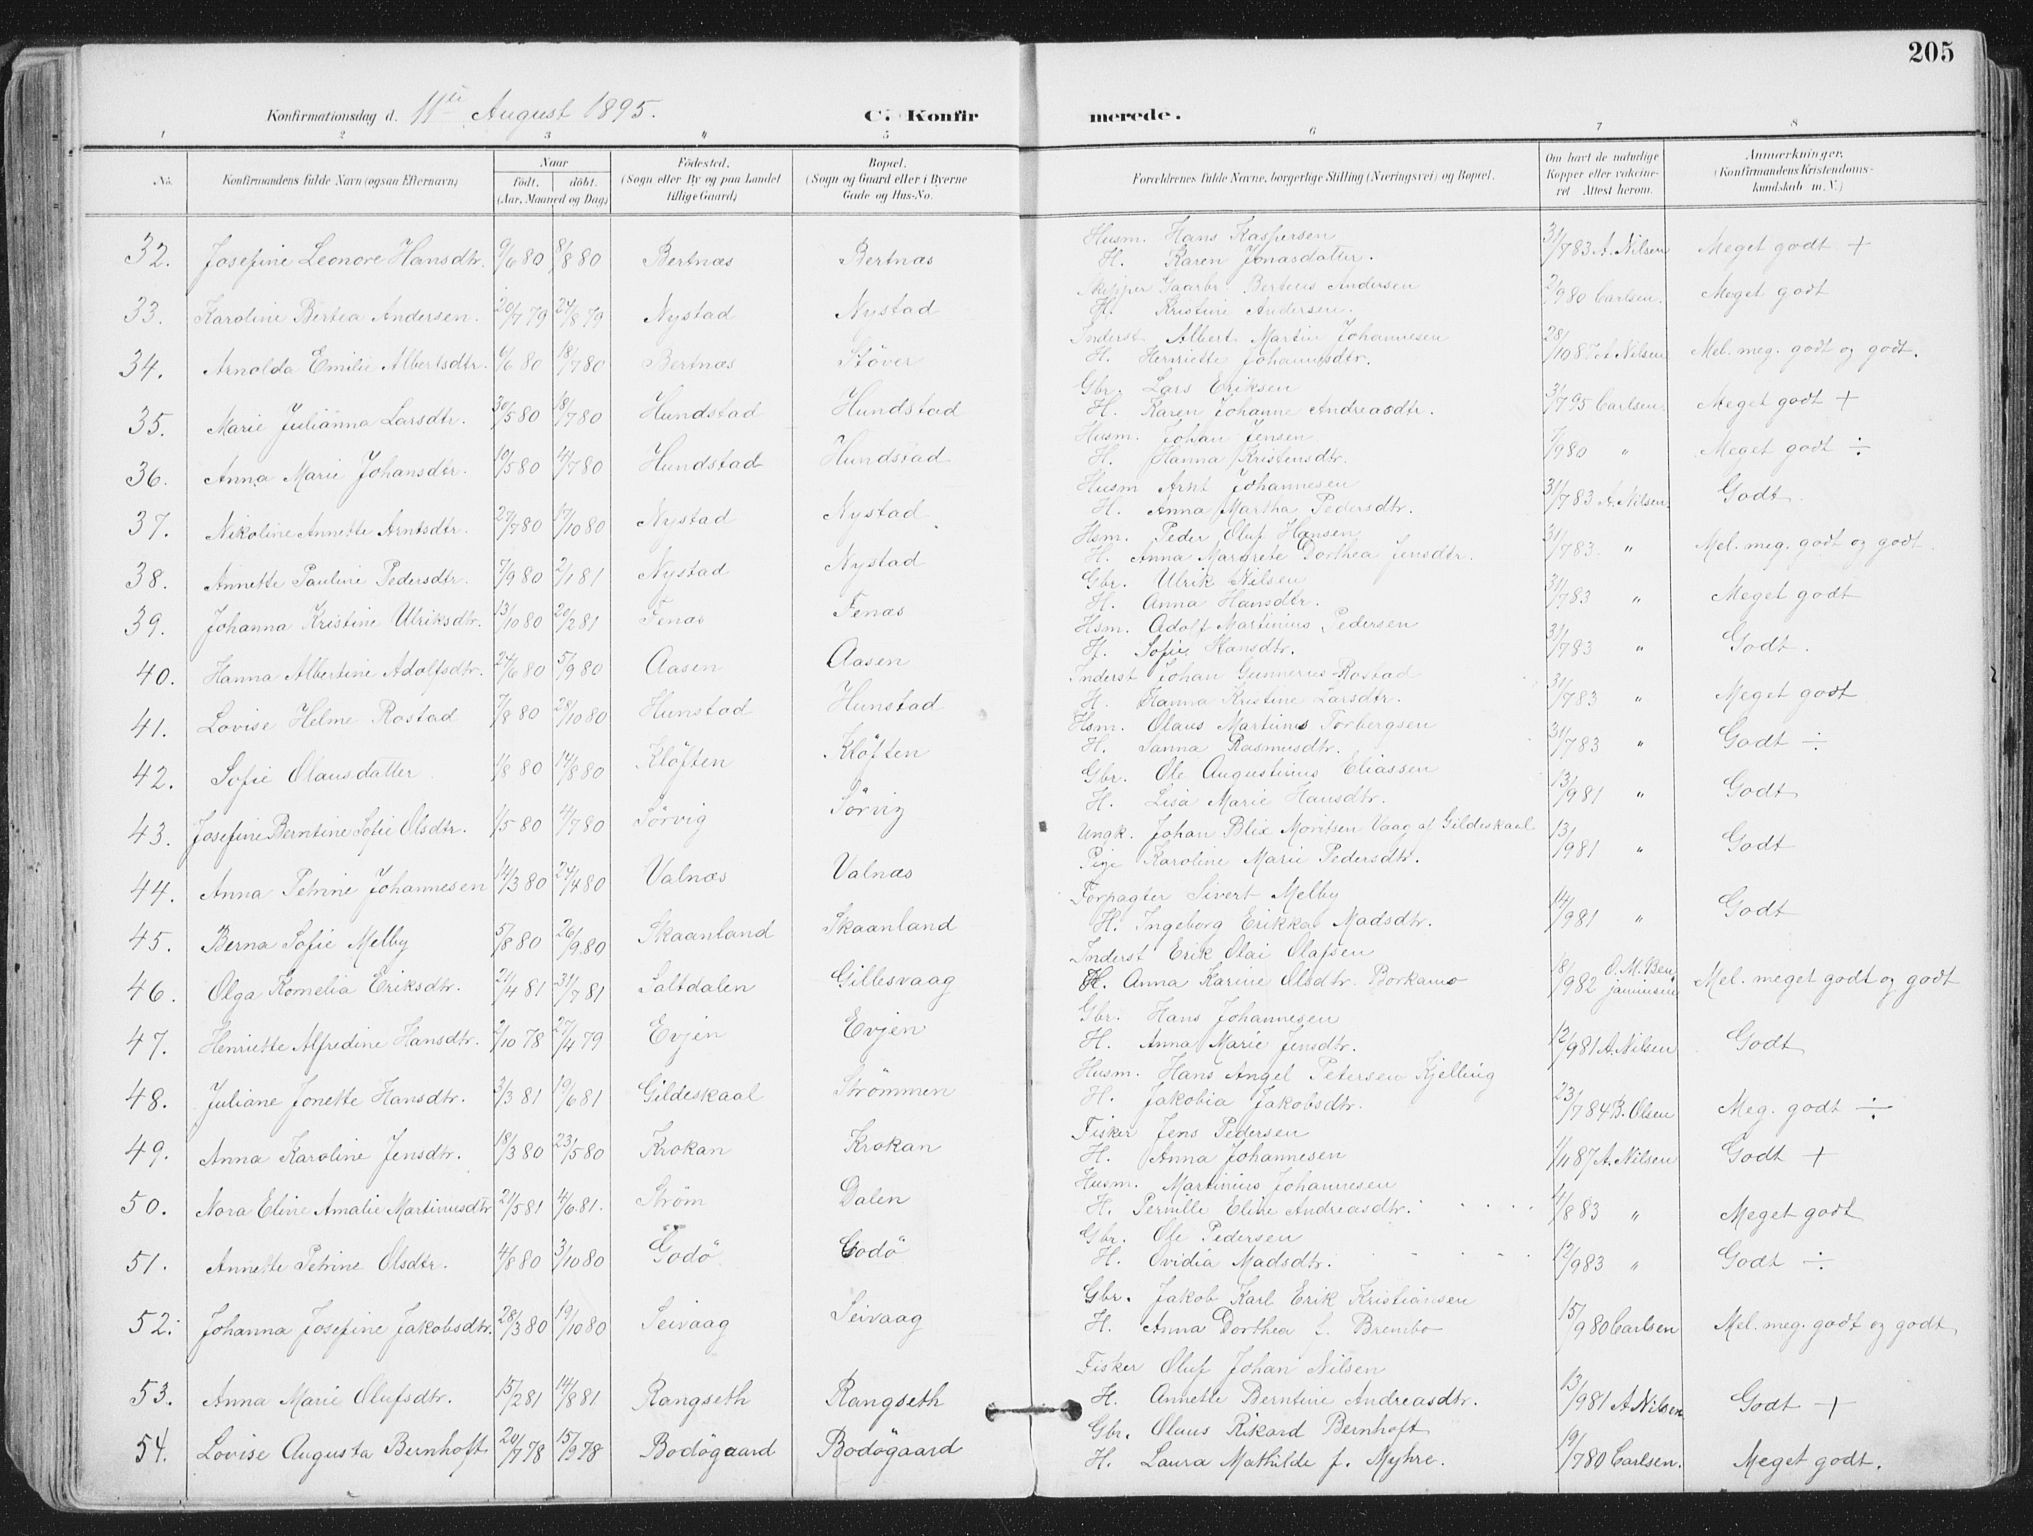 205
Konfirmationsdag d. 11te August 1895. C. Konfirmerede.
1 2 3 4 5 6 7 8
No. Konfirmandens fulde Navn (ogsaa Efternavn) Naar født. døbt. (Aar, Maaned og Dag) Fødested. (Sogn eller By og paa Landet tillige Gaard) Bopæl. (Sogn og Gaard eller i Byerne Gade og Hus-No. Forældrenes fulde Navne, borgerlige Stilling (Næringsvei) og Bopæl. Om havt de naturlige Kopper eller vakcineret Attest herom. Anmærkninger. (Konfirmandens Kristendomskundskab m. V.)
32. Josefine Leonore Hansdtr. 9/6 80 8/8 80 Bertnæs Bertnæs Husm. Hans Kaspersen
H. Karen Jonasdatter. 31/7 83 A. Nilsen Meget godt +
33. Karoline Bertea Andersen. 20/7 79 24/8 79 Nystad Nystad Skipper Gaarbr. Berteus Andersen
H. Kristine Andersen. 2/9 80 Carlsen. Meget godt
34. Arnolda Emilie Albertsdtr. 6/6 80 18/7 80 Bertnæs Støver Inderst Albert Martin Johannesen
H. Henriette Johannesdtr. 28/10 87 A. Nilsen Mel. meg. godt og godt.
35. Marie Julianna Larsdtr. 30/5 80 18/7 80 Hundstad Hundstad Gbr. Lars Eriksen
H. Karen Johanne Andreasdtr. 3/7 95 Carlsen. Meget godt +
36. Anna Marie Johansdtr. 10/5 80 4/7 80 Hundstad Hundstad Husm. Johan Jensen
H. Hanna Kristensdtr. 7/9 80 " Meget godt ÷
37. Nikoline Annette Arntsdtr. 27/7 80 17/10 80 Nystad Nystad Husm Arnt Johannesen
H. Anna Martha Pedersdtr. 31/7 83 A. Nilsen Godt.
38. Annette Pauline Pedersdtr. 7/9 80 2/1 81 Nystad Nystad Hsm. Peder Oluf Hansen
H. Anna Margrete Dorthea Jensdtr. 31/7 83. " Mel. meg. godt og godt.
39. Johanna Kristine Ulriksdtr. 13/10 80 20/2 81 Fenæs Fenæs Gbr. Ulrik Nilsen
H. Anna Hansdtr. 31/7 83 " Meget godt
40. Hanna Albertine Adolfsdtr. 24/6 80 5/9 80 Aasen Aasen Hsm. Adolf Martinius Pedersen
H. Sofie Hansdtr. 31/7 83 " Godt.
41. Lovise Helme Rostad 7/8 80 28/10 80 Hunstad Hunstad Inderst Johan Gunnerius Rostad
H. Hanna Kristine Larsdtr. 31/7 83 " Meget godt
42. Sofie Olausdatter 1/8 80 14/8 80 Kløften Kløften Hsm. Olaus Martinus Torbergsen
H. Sanna Rasmusdtr. 31/7 83 " Godt ÷
43. Josefine Berntine Sofie Olsdtr. 1/5 80 4/7 80 Sørvig Sørvig Gbr. Ole Augustinus Eliassen
H. Lisa Marie Hansdtr. 13/9 81 " Godt
44. Anna Petrine Johannesen 14/3 80 24/4 80 Valnæs Valnæs Ungk. Johan Blix Moritsen Vaag af Gildeskaal
Pige Karoline Marie Pedersdtr. 13/9 81 " Godt
45. Berna Sofie Melby 5/8 80 26/9 80 Skaanland Skaanland Forpagter Sivert Melby
H. Ingeborg Erikka Madsdtr. 14/9 81 " Godt
46. Olga Kornelia Eriksdtr. 21/4 81 31/7 81 Saltdalen Gillesvaag Inderst Erik Olai Olafsen
H. Anna Karine Olsdtr. Borkamo 18/9 82 O. M. Benjaminsen Mel. meget godt og godt
47. Henriette Alfredine Hansdtr. 2/10 78 27/4 79 Evjen Evjen Gbr. Hans Johannesen
H. Anna Marie Jensdtr. 12/9 81 A. Nilsen Godt
48. Juliane Jonette Hansdtr. 3/3 81 19/6 81 Gildeskaal Strømmen Husm. Hans Angel Petersen Kjelling
H. Jakobia Jakobsdtr. 23/7 84 B. Olsen Meg. godt ÷
49. Anna Karoline Jensdtr. 18/3 80 23/5 80 Krokan Krokan Fisker Jens Pedersen
H. Anna Johannesen 1/11 87 A. Nilsen Godt +
50. Nora Eline Amalie Martinusdtr 21/5 81 4/6 81. Strøm Dalen Husm. Martinius Johannesen
H. Pernille Eline Andreasdtr. 4/8 83 " Meget godt
51. Annette Petrine Olsdtr. 4/8 80 3/10 80 Godø Godø Gbr. Ole Pedersen
H. Ovidia Madsdtr. 12/9 83 " Godt ÷
52. Johanna Josefine Jakobsdtr. 28/3 80 19/10 80 Seivaag Seivaag Gbr. Jakob Karl Erik Kristiansen
H. Anna Dorthea f. Brembo 15/9 80 Carlsen Mel. meg. godt og godt
53. Anna Marie Olufsdtr. 15/2 81 14/8 81 Rangseth Rangseth Fisker Oluf Johan Nilsen
H. Annette Berntine Andreasdtr. 13/9 81 A. Nilsen Godt +
54. Lovise Augusta Bernhoft 20/7 78 15/9 78 Bodøgaard Bodøgaard Gbr. Olaus Rikard Bernhoft
H. Laura Mathilde f. Myhre. 19/7 80 Carlsen. Meget godt.